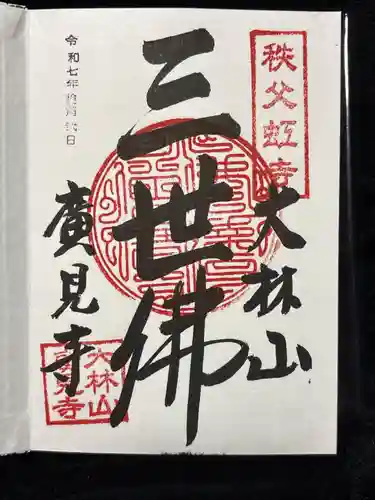 秩父虹寺
大林山
三世佛
廣見寺
令和七年拾月弐日
大林山
廣見寺